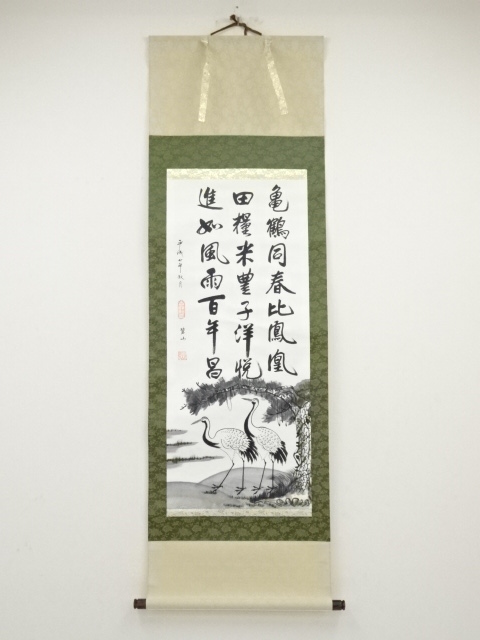 亀鶴同春比鳳凰
田糧米豊子洋悦
進如風雨百年昌